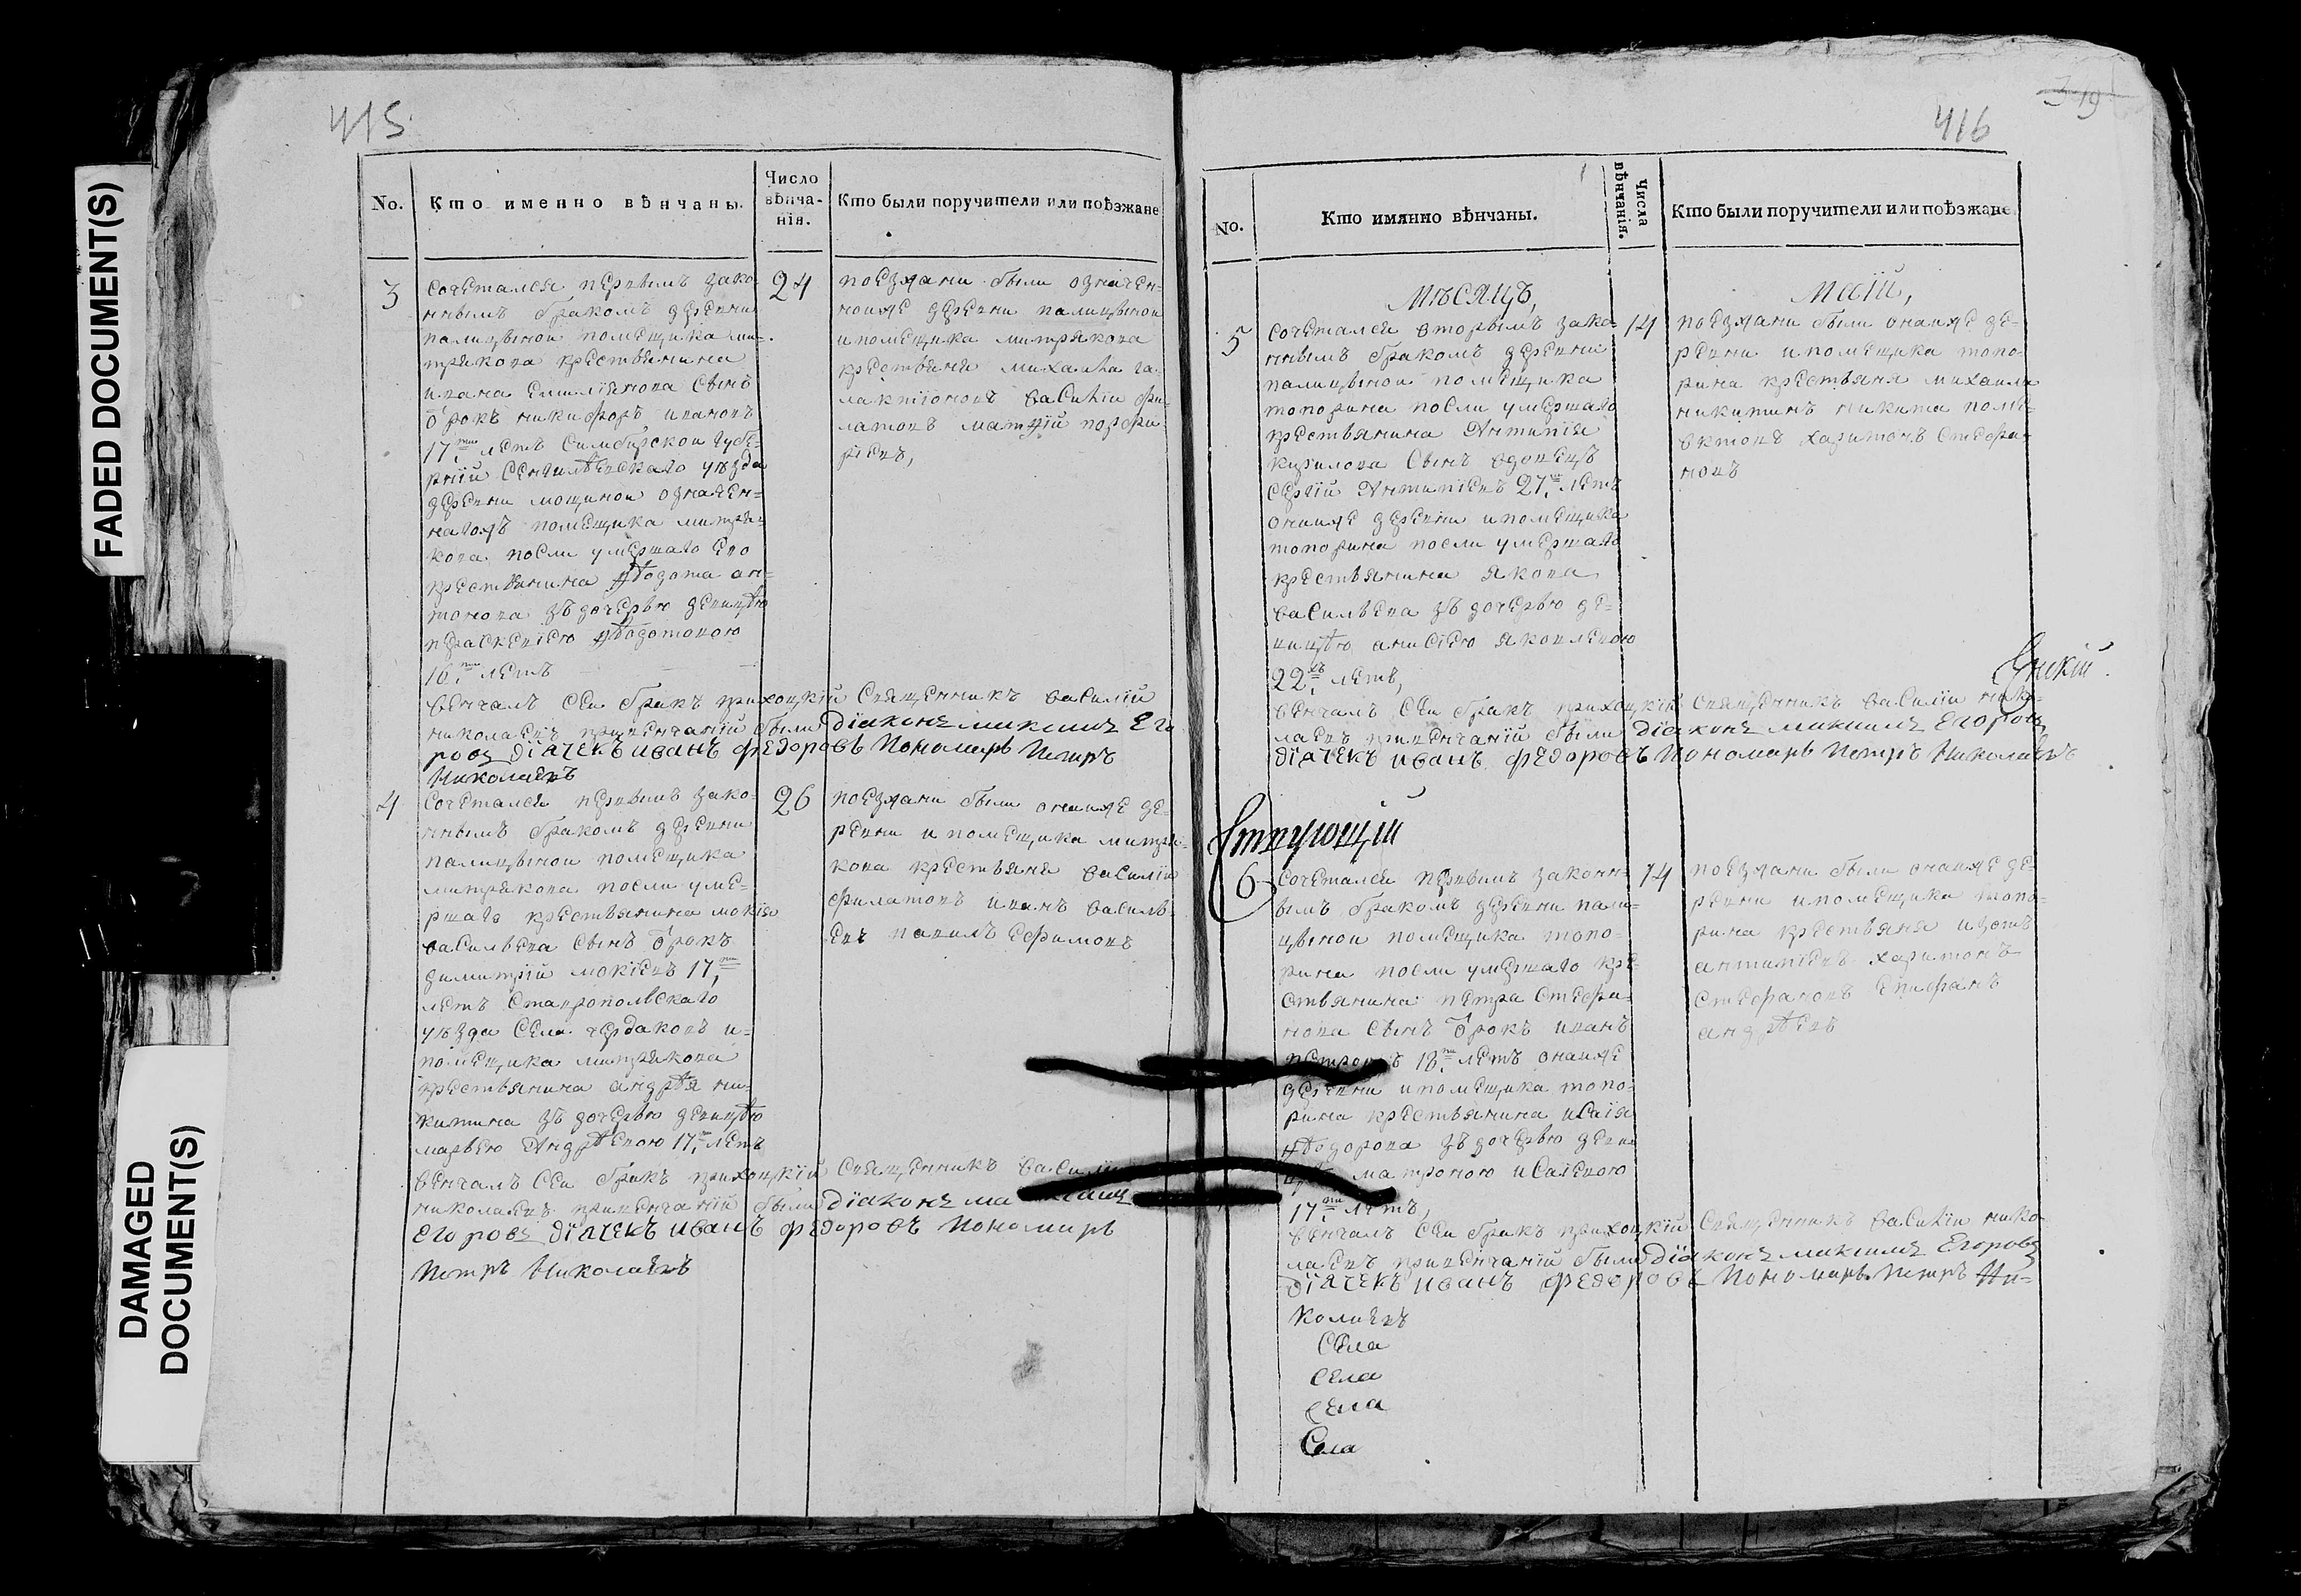 FADED DOCUMENT(S)
DAMAGED
DOCUMENT(S)
415
No.
Кто именно вѣнчаны.
Число
вѣнча-
нія.
Кто были поручители или поѣзжане
3
сочетался первымъ зако-
ннымъ бракомъ деревни
палицыной помещика ми-
трякова крестьянина
ивана емилиянова сынъ
отрокъ никифоръ ивановъ
17.ти летъ симбирской губе-
рніи сенгилѣевскаго уѣзда
деревни мощиной означен-
нагожъ помещика митря-
кова посли умершаго ево
крестьянина ѳѣодота ан-
тонова зъ дочерью девицѣю
параскевиею ѳѣодотовою
16.ти летъ
24
поезжани были означен-
ноиже деревни палицыной
и помещика митрякова
крестьяня михаила га-
лактіоновъ василіи фи-
латовъ матѳій порфи-
ріевъ,
венчалъ сеи бракъ прихоцкій священникъ василій
николаевъ привенчаніи были Діаконъ Максимъ Его
ровъ Дїячекъ иванъ федоровъ Пономарь Петръ
Николаевъ
4
сочетался первымъ зако-
ннымъ бракомъ деревни
палицыной помещика
митрякова посли уме-
ршаго крестьянина мокіа
васильева сынъ отрокъ
димитрій мокіевъ 17,ти
летъ ставропольскаго
уѣзда села чердаковъ и-
помещика митрякова
крестьянина андрѣя ни-
китина зъ дочерью девицѣю
марьею андрѣевою 17.ти летъ
26
поезжани были онаиже де-
ревни и помещика митря-
кова крестьяня василіи
филатовъ иванъ василь-
евъ павилъ ефимовъ
венчалъ сеи бракъ прихоцкій священникъ василій
николаевъ привенчаніи были Діаконъ Максимъ
Егоровъ Дїячекъ иванъ федоровъ Пономарь
Петръ Николаевъ
416
No.
Кто имянно вѣнчаны.
Числа
вѣнчанія.
Кто были поручители или поѣзжане
Мѣсяцъ,
Маій,
5
сочетался вторымъ зако-
ннымъ бракомъ деревни
палицыной помещика
топорина посли умершаго
крестьянина антипія
кирилова сынъ вдовецъ
сергій антипіевъ 27. летъ
онаиже деревни и помещика
топорина посли умершаго
крестьянина якова
васильева зъ дочерью де-
вицѣю анисіею яковлевою
22.хъ летъ,
14
поезжани были онаиже де-
ревни и помещика топо-
рина крестьяня михаила
никитинъ никита
харитонъ стефа-
новъ
венчалъ сеи бракъ прихоцкіи священникъ василіи нико-
лаевъ привенчаніи были Діаконъ Максимъ Егоровъ
Дїячекъ иванъ федоровъ Пономарь Петръ Николаевъ
6
сочетался первымъ законн-
ымъ бракомъ деревни пали-
цыной помещика топо-
рина посли умершаго кре-
стьянина петра стефа-
нова сынъ отрокъ иванъ
петровъ 18.ти летъ онаиже
деревни и помещика топо-
рина крестьянина исаія
ѳѣодорова зъ дочерью деви-
цѣю матроною исаіевою
17.ти летъ,
14
поезжани были онаиже де-
ревни и помещика топо-
рина крестьяня изотъ
антипіевъ харитонъ
стефановъ епифанъ
андрѣевъ
венчалъ сеи бракъ прихоцкій священникъ василіи нико-
лаевъ привенчаніи были Діаконъ Максимъ Егоровъ
Дїячекъ иванъ федоровъ Пономарь Петръ Ни-
колаевъ
Села
села
села
Села